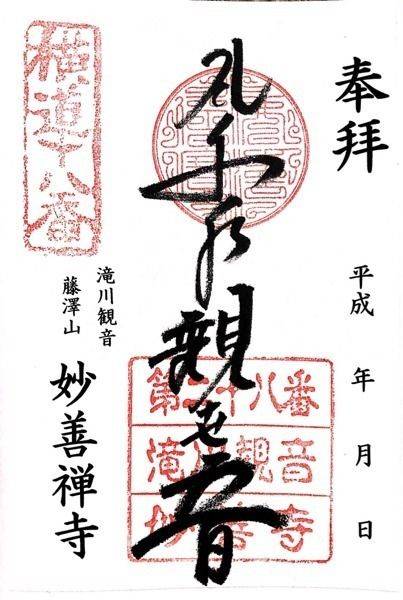 奉拝
平成 年 月 日
千手観世音
第二十八番
滝川観音
妙善寺
横道十八番
滝川観音
藤澤山
妙善禅寺